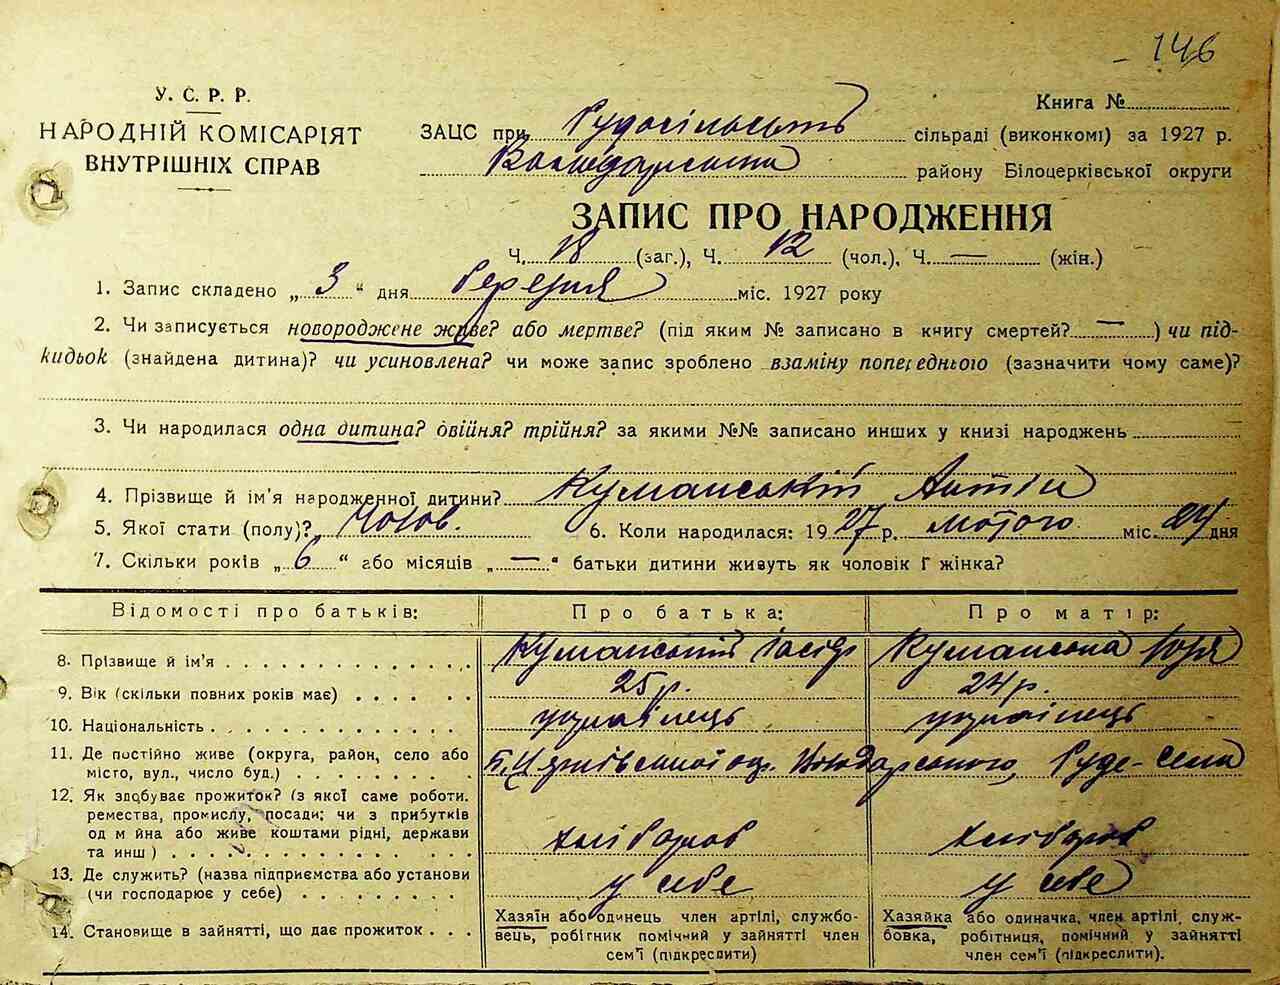 146
У. С. Р. Р.
НАРОДНІЙ КОМІСАРІЯТ
ВНУТРІШНІХ СПРАВ
Книга №
ЗАЦС при Рудосільськ сільраді (виконкомі) за 1927 р.
Володарського району Білоцерківської округи
ЗАПИС ПРО НАРОДЖЕННЯ
Ч. 18 (заг.), Ч. 12 (чол.), Ч. — (жін.)
1. Запис складено „ 3 “ дня березня міс. 1927 року
2. Чи записується новороджене живе? або мертве? (під яким № записано в книгу смертей? — ) чи під-
кидьок (знайдена дитина)? чи усиновлена? чи може запис зроблено взаміну попереднього (зазначити чому саме)?
3. Чи народилася одна дитина? двійня? трійня? за якими №№ записано инших у книзі народжень
4. Прізвище й ім'я народженної дитини? Куманський Антін
5. Якої стати (полу)? Чолов. 6. Коли народилася: 1927 р. лютого міс. 24 дня
7. Скільки років „ 6 “ або місяців „ — “ батьки дитини живуть як чоловік Ґ жінка?
Відомості про батьків: Про батька: Про матір:
8. Прізвище й ім'я Куманський Куманська
9. Вік (скільки повних років має) 25 р. 24 р.
10. Національність українець українець
11. Де постійно живе (округа, район, село або
місто, вул., число буд.) Б. Церківської окр. Володарського, Руде-Село
12. Як здобуває прожиток? (з якої саме роботи.
ремества, промислу, посади; чи з прибутків
од майна або живе коштами рідні, держави
та инш) хлібороб хлібороб
13. Де служить? (назва підприємства або установи
(чи господарює у себе) у себе у себе
14. Становище в зайнятті, що дає прожиток
Хазяїн або одинець член артілі, службо-
вець, робітник помічний у зайнятті член
сем'ї (підкреслити)
Хазяйка або одиначка, член артілі, служ-
бовка, робітниця, помічний у зайнятті
член сем'ї (підкреслити).